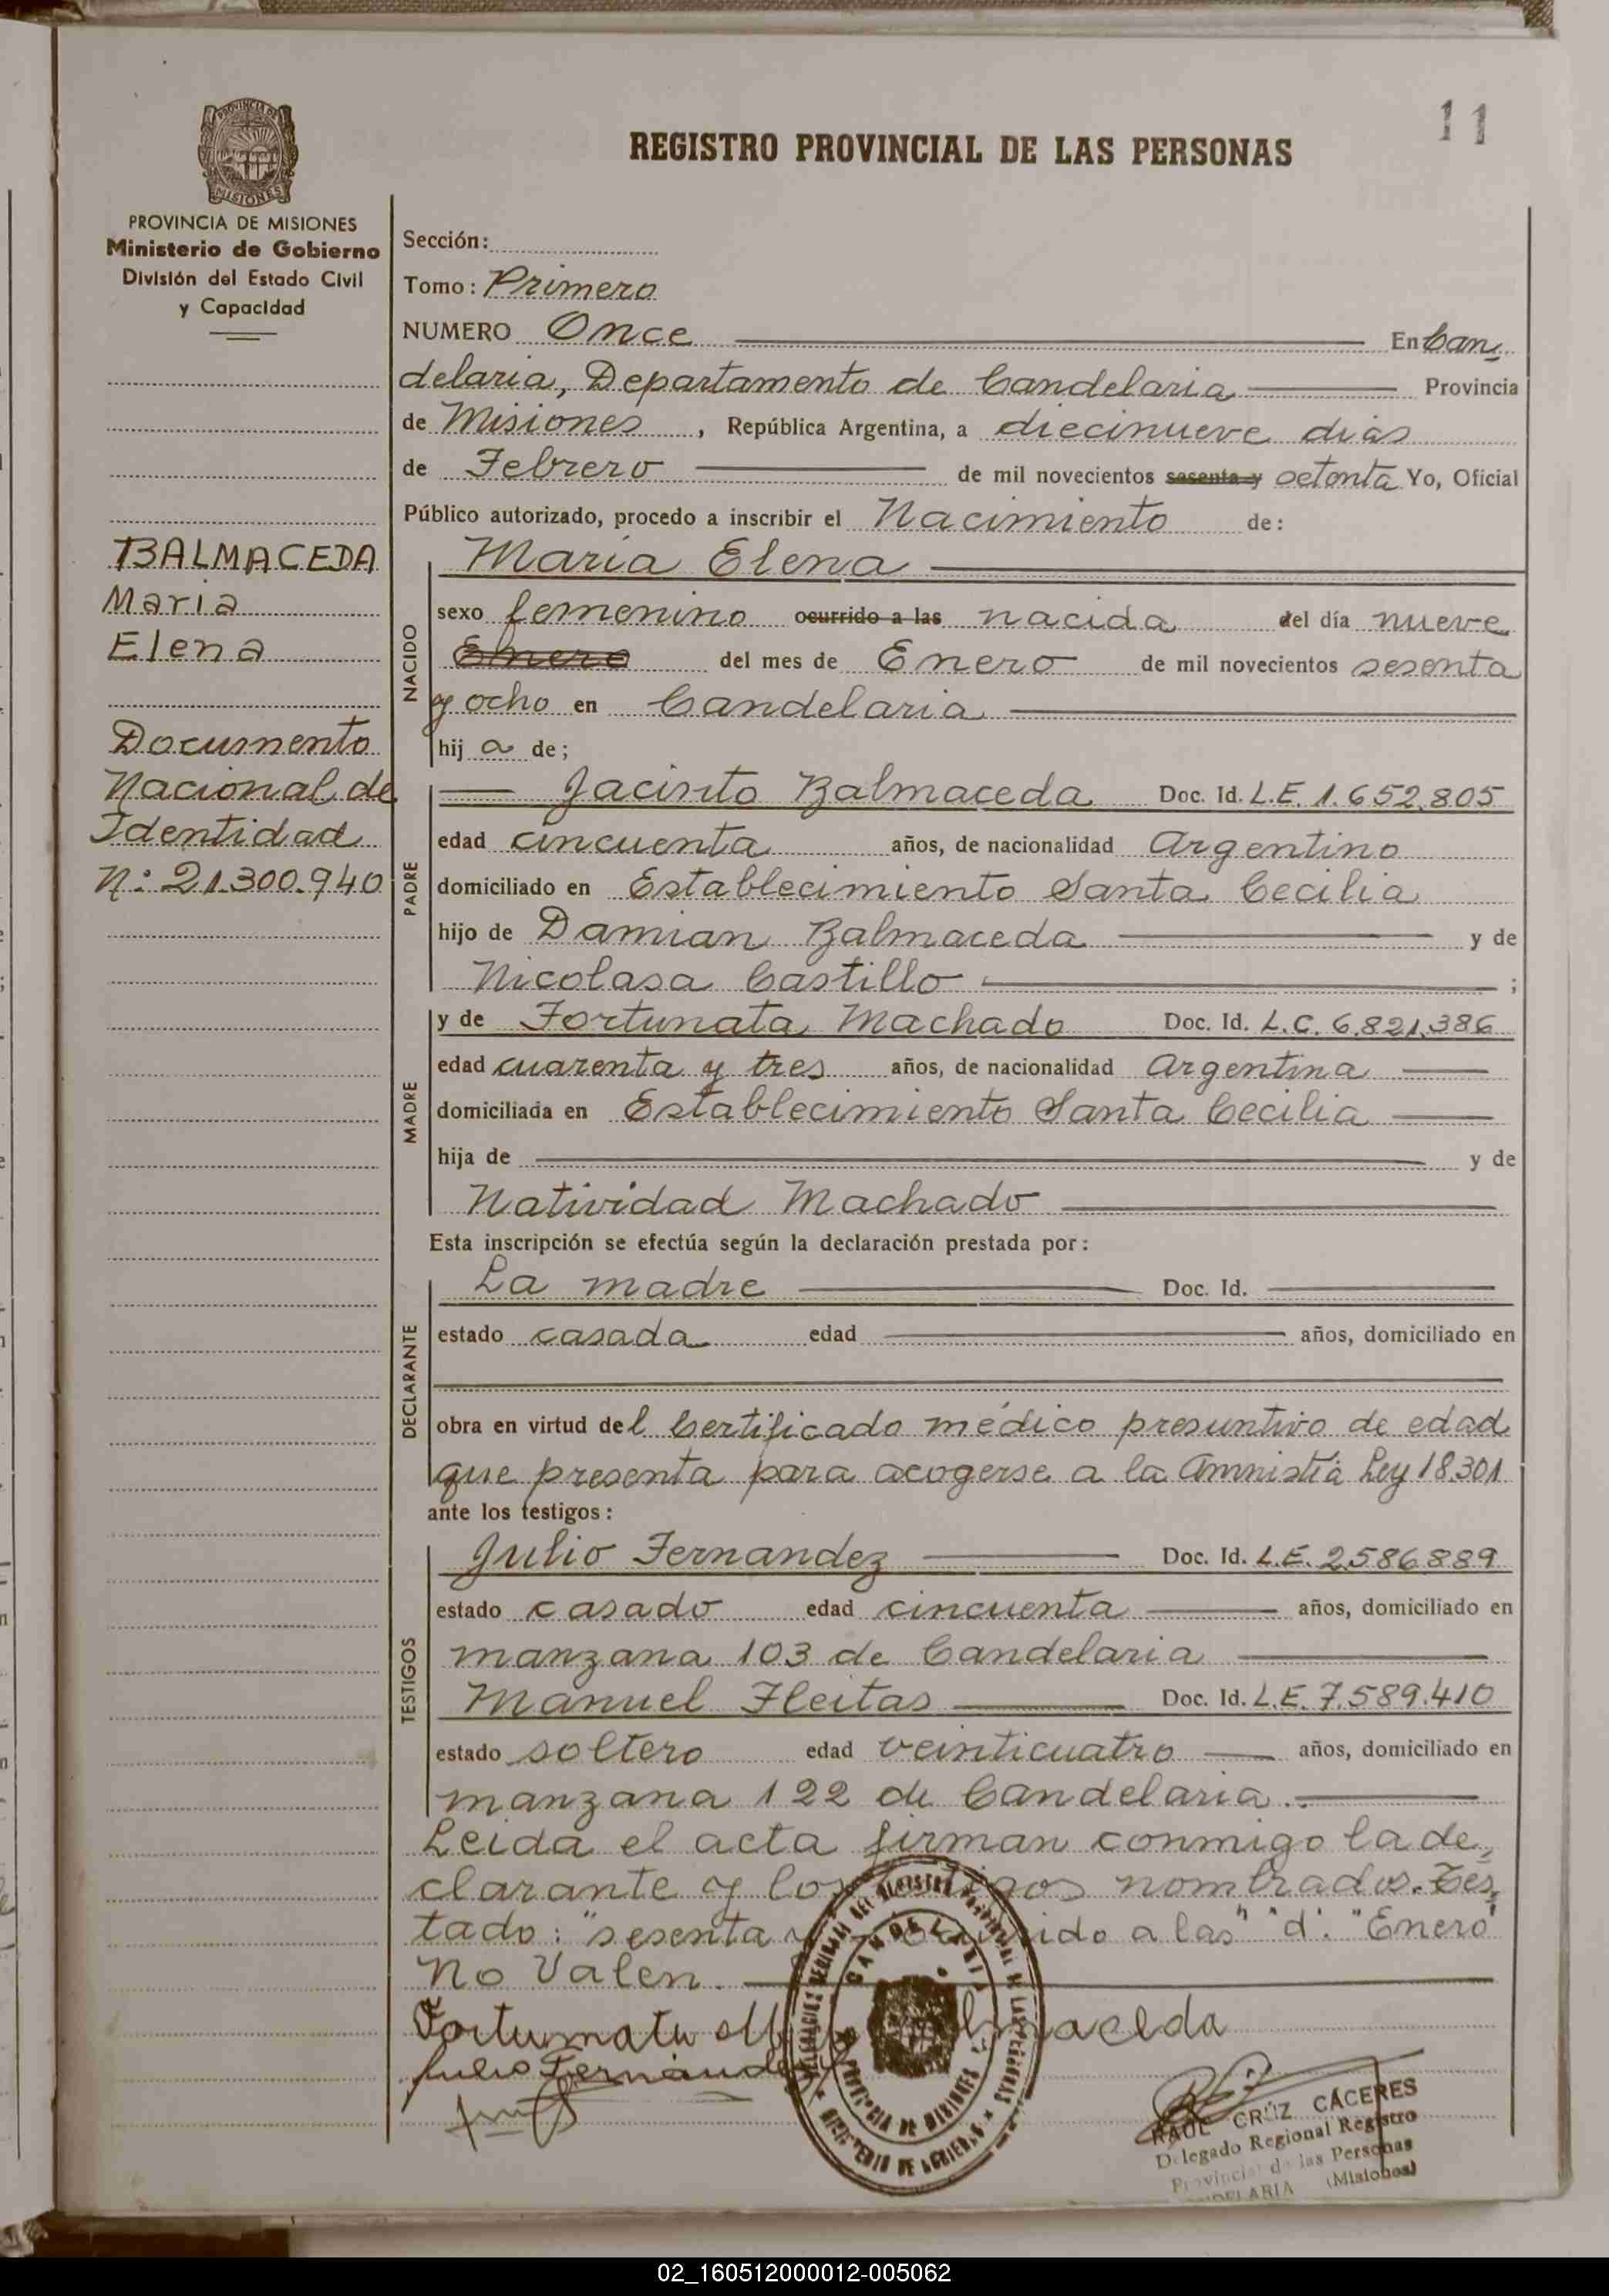 11
REGISTRO PROVINCIAL DE LAS PERSONAS
PROVINCIA DE MISIONES
Ministerio de Gobierno
División del Estado Civil
y Capacidad
BALMACEDA
Maria
Elena
Documento
Nacional de
Identidad
Nº 21.300.940
Sección:
Tomo: Primero
NUMERO Once En Can
delaria, Departamento de Candelaria Provincia
de Misiones, República Argentina, a diecinueve dias
de Febrero de mil novecientos sesenta y setenta Yo, Oficial
Público autorizado, procedo a inscribir el Nacimiento de:
NACIDO
Maria Elena
sexo femenino ocurrido a las nacida del día nueve
Enero del mes de Enero de mil novecientos sesenta
y ocho en Candelaria
hij a de;
PADRE
Jacinto Balmaceda Doc. Id. L.E. 1.652.805
edad cincuenta años, de nacionalidad Argentino
domiciliado en Establecimiento Santa Cecilia
hijo de Damian Balmaceda y de
Nicolasa Castillo ;
MADRE
y de Fortunata Machado Doc. Id. L.C. 6.821.386
edad cuarenta y tres años, de nacionalidad Argentina
domiciliada en Establecimiento Santa Cecilia
hija de y de
Natividad Machado
Esta inscripción se efectúa según la declaración prestada por:
DECLARANTE
La madre Doc. Id.
estado casada edad años, domiciliado en
obra en virtud del Certificado médico presuntivo de edad
que presenta para acogerse a la Amnistia Ley 18.301
ante los testigos:
TESTIGOS
Julio Fernandez Doc. Id. L.E. 2.586.889
estado casado edad cincuenta años, domiciliado en
manzana 103 de Candelaria
Manuel Fleitas Doc. Id. L.E. 7.589.410
estado soltero edad veinticuatro años, domiciliado en
manzana 122 de Candelaria.
Leida el acta firman conmigo la de
clarante y los nombrados. Tes
tado: "sesenta y a las" "d". "Enero"
No Valen.
Fortunata
Julio Fernandez
CANDELARIA
PROVINCIA DE MISIONES
MINISTERIO DE GOBIERNO
RAUL CRUZ CÁCERES
Delegado Regional Registro
Provincial de las Personas
CANDELARIA (Misiones)
02_160512000012-005062